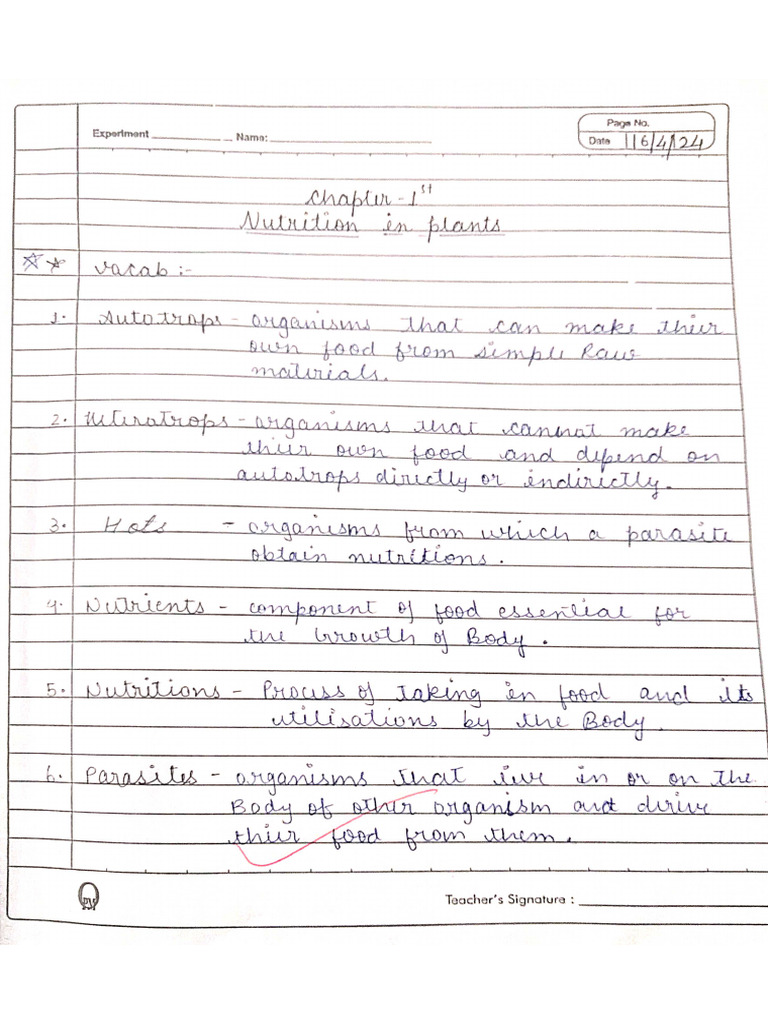 Experiment Name:
Page No.
Date 16/4/24
Chapter-1st
Nutrition in plants
vacab :-
1. Autotrops - organisms that can make thier
own food from simple Raw
materials.
2. Hterotrops - organisms that cannot make
thier own food and depend on
autotrops directly or indirectly.
3. Hots - organisms from which a parasite
obtain nutritions.
4. Nutrients - component of food essential for
the Growth of Body.
5. Nutritions - Process of Taking in food and its
utilisations by the Body.
6. Parasites - organisms that live in or on the
Body of other organism and dirive
thier food from them.
Teacher's Signature :